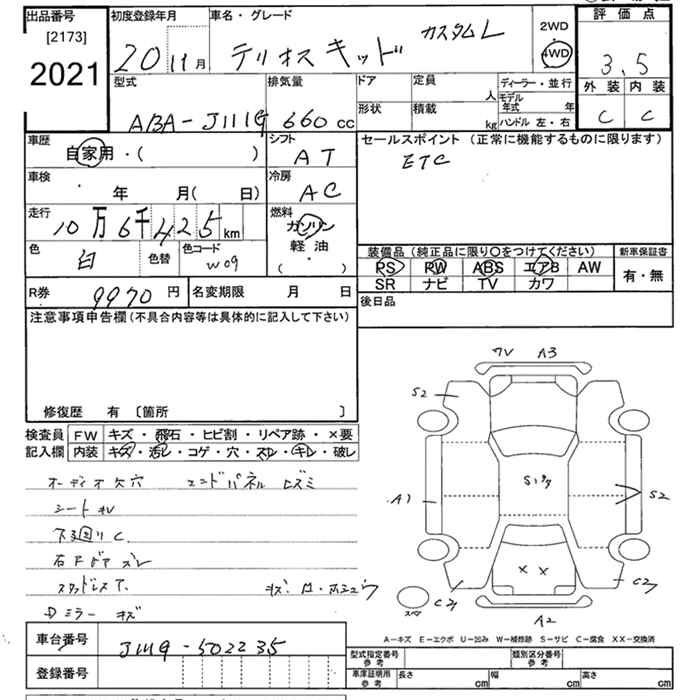 出品番号
[2173]
2021
初度登録年月
20 11月
車名・グレード
テリオスキッド カスタムL
2WD
4WD
評価点
3.5
外装 内装
C C
型式
ABA-J111G
排気量
660 cc
ドア
定員
人
形状
積載
kg
ディーラー・並行
モデル年式 年
ハンドル 左・右
車歴
自家用・( )
シフト
AT
セールスポイント (正常に機能するものに限ります)
ETC
車検
年 月( 日)
冷房
AC
走行
10万6千425km
燃料
ガソリン
軽油
( ・ )
色
白
色替
色コード
W09
装備品(純正品に限り○をつけてください)
PS PW ABS エアB AW
SR ナビ TV カワ
新車保証書
有・無
R券 9970円
名変期限 月 日
後日品
注意事項申告欄(不具合内容等は具体的に記入して下さい)
修復歴 有 〔箇所 〕
検査員記入欄
FW キズ・飛石・ヒビ割・リペア跡・×要
内装 キズ・汚レ・コゲ・穴・スレ・キレ・破レ
オーディオ欠穴
シート
下廻りC
スタッドレスT.
Dミラー キズ
ワレ A3
S2
A1
S2
C2
C2
A2
スペア
× ×
A-キズ E-エクボ U-凹み W-補修跡 S-サビ C-腐食 XX-交換済
車台番号
J111G-502235
登録番号
型式指定番号 参考
類別区分番号 参考
車庫証明用 参考
長さ cm
幅 cm
高さ cm